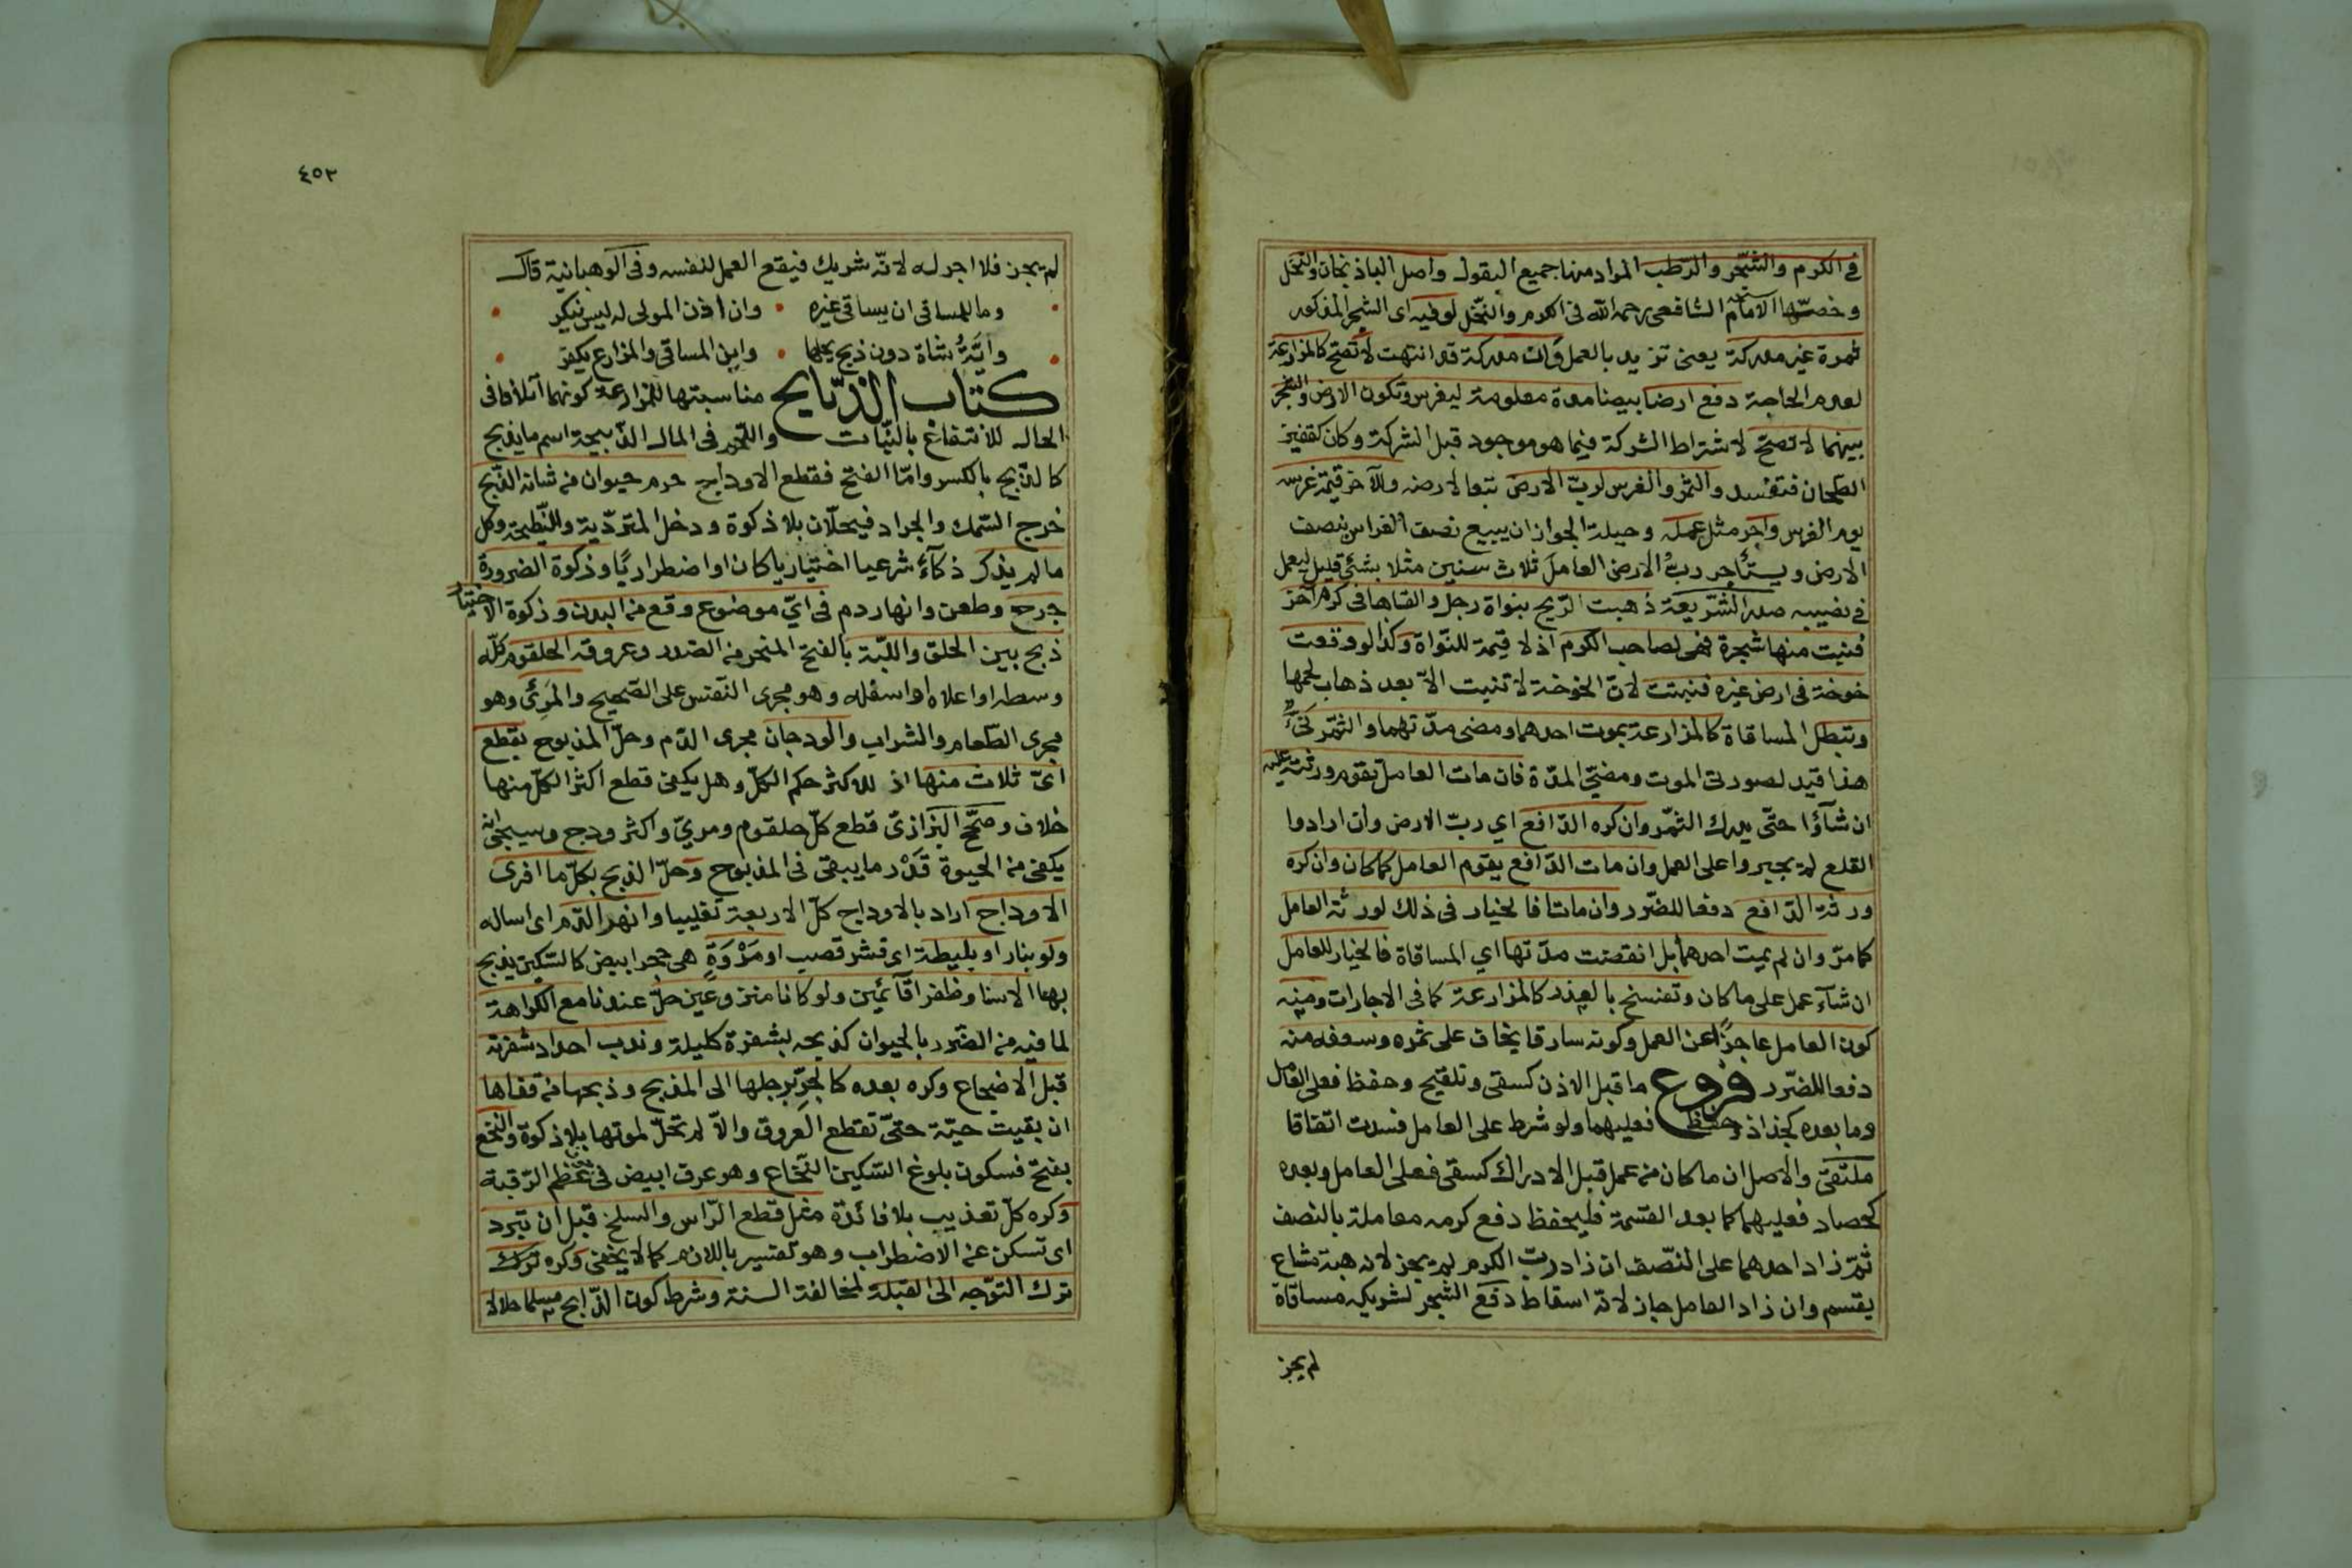 في الكرم والشّجر والرّطب المراد منها جميع البقول واصل الباذنجان والنخل
وخصّها الامام الشافعى رحمه الله فى الكرم والنّخل لو فيه اى الشجر المذكور
ثمرة غير مدركة يعنى تزيد بالعمل وان مدركة قد انتهت لا تصح كالمزارعة
لعدم الحاجة دفع ارضا بيضا مدة معلومة ليغرس وتكون الارض والشجر
بينهما لا تصحّ لاشتراط الشركة فيما هو موجود قبل الشركة وكان كقفيز
الطحان فتفسد والثمر والغرس لربّ الارض تبعا لارضه وللآخر قيمة غرسه
يوم الغرس واجر مثل عمله وحيلة الجواز ان يبيع نصف الغراس بنصف
الارض ويستأجر ربّ الارض العامل ثلاث سنين مثلا بشئ قليل ليعمل
فى نصيبه صدر الشّريعة ذهبت الرّيح بنواة رجل والقاها فى كرم آخر
فنبت منها شجرة فهى لصاحب الكرم اذ لا قيمة للنّواة وكذا لو وقعت
خوخة فى ارض غيره فنبتت لانّ الخوخة لا تنبت الّا بعد ذهاب لحمها
وتبطل المساقاة كالمزارعة بموت احدهما ومضى مدّتهما والثمر نىّ
هذا قيد لصورتى الموت ومضىّ المدّة فان مات العامل تقوم ورثته عليه
ان شآؤا حتّى يدرك الثمر وان كره الدّافع اي ربّ الارض وان ارادوا
القلع لم يجبروا على العمل وان مات الدّافع يقوم العامل كما كان وان كره
ورثة الدّافع دفعا للضّرر وان ماتا فالخيار فى ذلك لورثة العامل
كما مرّ وان لم يمت احدهما بل انقضت مدّتها اي المساقاة فالخيار للعامل
ان شآء عمل على ما كان وتفسخ بالعذر كالمزارعة كما فى الاجارات ومنه
كون العامل عاجزًا عن العمل وكونه سارقا يخاف على ثمره وسعفه منه
دفعا للضّرر فروع ما قبل الادراك كسقى وتلقيح وحفظ فعلى العامل
وما بعده كجذاذ وحفظ فعليهما ولو شرط على العامل فسدت اتفاقا
ملتقى والاصل ان ما كان من عمل قبل الادراك كسقى فعلى العامل وبعده
كحصاد فعليهما كما بعد القسمة فليحفظ دفع كرمه معاملة بالنصف
ثمّ زاد احدهما على النّصف ان زاد ربّ الكرم لم يجز لانه هبة مشاع
يقسم وان زاد العامل جاز لانّه اسقاط دفع الشجر لشريكه مساقاة
لم يجز
٤٥٣
لم يجز فلا اجر له لانّه شريك فيقع العمل لنفسه وفى الوهبانية قال
وما للمساقى ان يساقى غيره • وان اذن المولى له ليس ينكر
وايّة شاة دون ذبح يحلها • واين المساقى والمزارع يكفر
كتاب الذّبايح مناسبتها للمزارعة كونهما اتلافا فى
الحال للانتفاع بالنّبات واللّحم فى المال الذّبيحة اسم ما يذبح
كالذّبح بالكسر وامّا الفتح فقطع الاوداج حرم حيوان من شانه الذّبح
خرج السّمك والجراد فيحلّان بلا ذكوة ودخل المتردّية والنّطيحة وكل
ما لم يذكر ذكآءً شرعيا اختياريا كان او اضطراريًا وذكوة الضرورة
جرح وطعن وانهار دم فى ايّ موضوع وقع من البدن وذكوة الاختيار
ذبح بين الحلق واللّبّة بالفتح المنحر من الصّدر وعروقه الحلقوم كلّه
وسطه او اعلاه او اسفله وهو مجرى النّفس على الصّحيح والمرئ وهو
مجرى الطّعام والشراب والودجان مجرى الدّم وحلّ المذبوح بقطع
اىّ ثلاث منها اذ للاكثر حكم الكلّ وهل يكفى قطع اكثر الكلّ منها
خلاف وصحّح البزازىّ قطع كلّ حلقوم ومريّ واكثر ودج وسيجئ انه
يكفى من الحيوة قدر ما يبقى فى المذبوح وحلّ الذبح بكلّ ما افرى
الاوداج اراد بالاوداج كلّ الاربعة تغليبا وانهر الدّم اى اساله
ولو بنار او بليطة اى قشر قصب او مَرْوَةٍ هى حجر ابيض كالسّكين يذبح
بها الا سنا وظفرا قآئمين ولو كانا منزوعين حلّ عندنا مع الكراهة
لما فيه من الضّرر بالحيوان كذبحه بشفرة كليلة وندب احداد شفرته
قبل الاضجاع وكره بعده كالجرّ برجلها الى المذبح وذبحها من قفاها
ان بقيت حيّة حتّى تقطع العروق والّا لم تحلّ لموتها بلا ذكوة والنخع
بفتح فسكون بلوغ السّكين النّخاع وهو عرق ابيض فى عظم الرّقبة
وكره كلّ تعذيب بلا فائدة مثل قطع الرّاس والسلخ قبل ان تبرد
اى تسكن عن الاضطراب وهو تفسير باللازم كما لا يخفى وكره ترك
ترك التّوجه الى القبلة لمخالفة السنة وشرط كون الذّابح مسلما حلالا